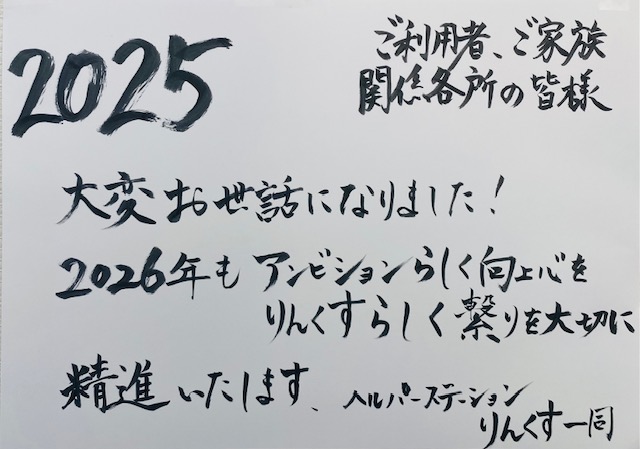 2025
ご利用者、ご家族
関係各所の皆様
大変お世話になりました!
2026年も アンビションらしく向上心を
りんくすらしく繋りを大切に
精進いたします、
ヘルパーステーション
りんくす一同